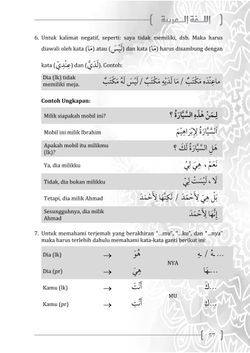 اللغة العربية
6. Untuk kalimat negatif, seperti: saya tidak memiliki, dsb. Maka harus
diawali oleh kata (مَا) atau (لَيْسَ) dan kata (مَا) harus disambung dengan
kata (عِنْدِيْ) dan (لَدَيَّ). Contoh:
Dia (lk) tidak memiliki meja. مَاعِنْدَه مَكْتَبٌ / مَا لَدَيْهِ مَكْتَبٌ / لَيْسَ لَهُ مَكْتَبٌ
Contoh Ungkapan:
Milik siapakah mobil ini? لِمَنْ هٰذِهِ السَّيَّارَةُ ؟
Mobil ini milik Ibrahim اَلسَّيَّارَةُ لِإِبْرَاهِيْمَ
Apakah mobil itu milikmu (lk)? هَلِ السَّيَّارَةُ لَكَ ؟
Ya, dia milikku نَعَمْ ، هِيَ لِيْ
Tidak, dia bukan milikku لَا ، لَيْسَتْ لِيْ
Tetapi, dia milik Ahmad بَلْ هِيَ لِأَحْمَدَ / لٰكِنَّهَا لِأَحْمَدَ
Sesungguhnya, dia milik Ahmad إِنَّهَا لِأَحْمَدَ
7. Untuk memahami terjemah yang berakhiran "...mu", "...ku", dan "...nya"
maka harus terlebih dahulu memahami kata-kata ganti berikut ini:
Dia (lk) → هُوَ ـهُ / ـهِ
NYA
Dia (pr) → هِيَ ـهَا
Kamu (lk) → أَنْتَ ـكَ
MU
Kamu (pr) → أَنْتِ ـكِ
57